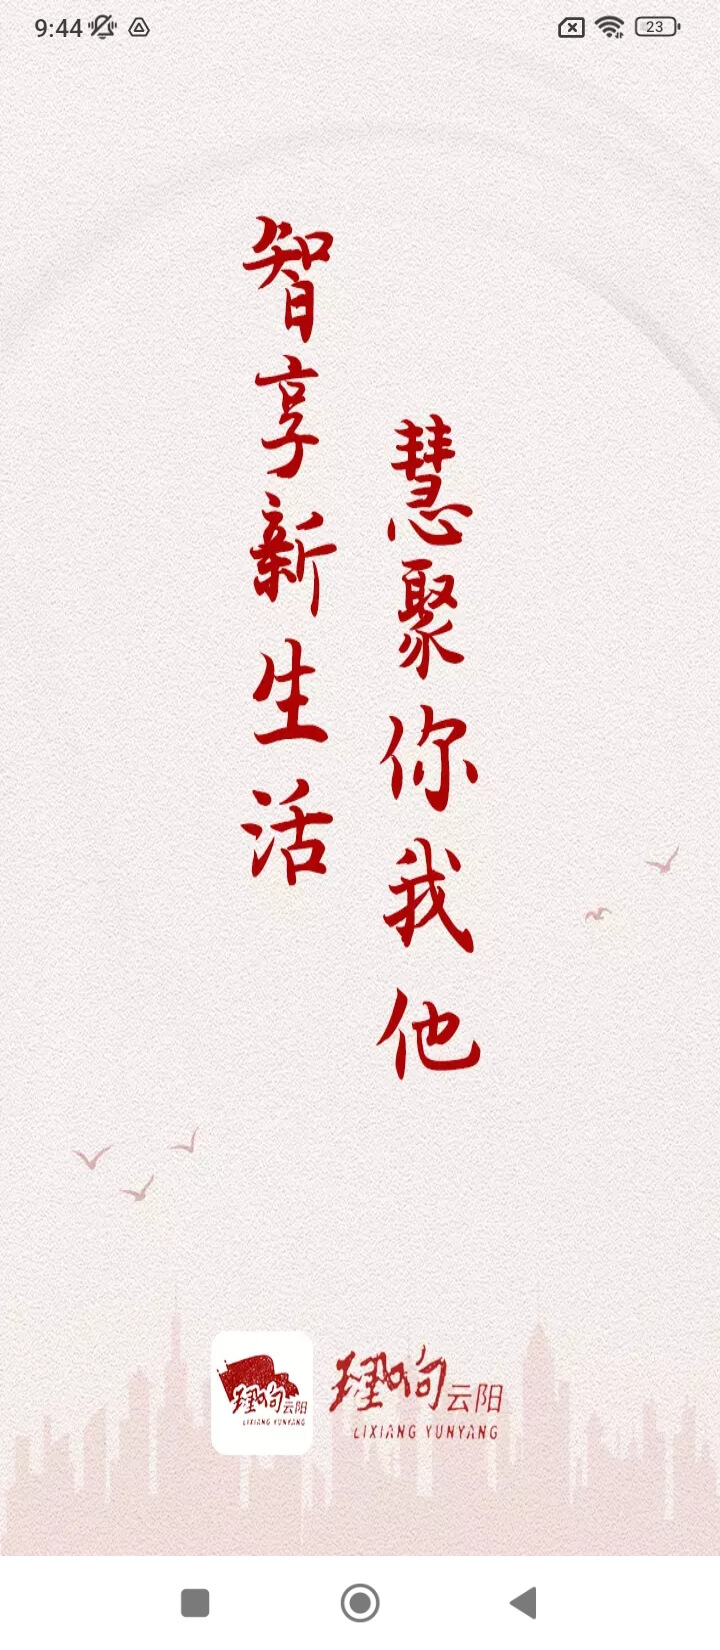 9:44
23
智享新生活
慧聚你我他
理响云阳
LIXIANG YUNYANG
理响云阳
LIXIANG YUNYANG